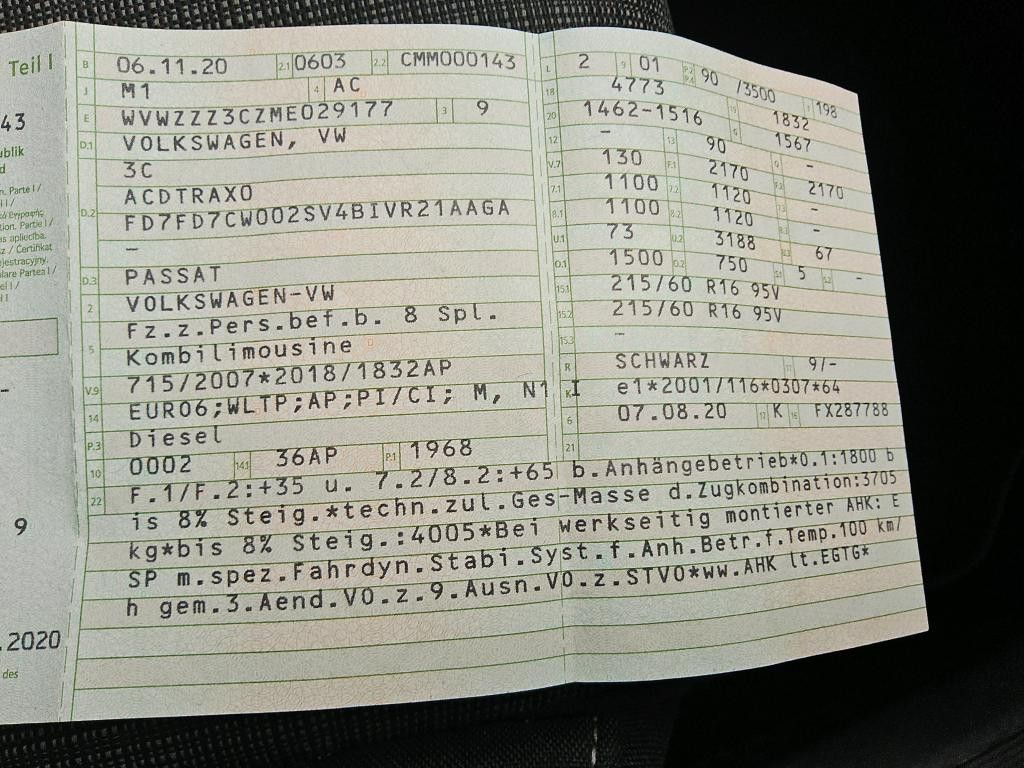 Teil I
43
ublik
d
n. Parte I /
tion. Partie I /
as apliecība.
z / Certifikat
ejestracyjny.
olare Partea I /
el I /
9
.2020
des
B 06.11.20 2.1 0603 2.2 CMM000143
J M1 4 AC
E WVWZZZ3CZME029177 3 9
D.1 VOLKSWAGEN, VW
3C
ACDTRAX0
D.2 FD7FD7CW002SV4BIVR21AAGA
–
D.3 PASSAT
2 VOLKSWAGEN-VW
Fz.z.Pers.bef.b. 8 Spl.
5 Kombilimousine
V.9 715/2007*2018/1832AP
14 EURO6;WLTP;AP;PI/CI; M, N1 I
P.3 Diesel
10 0002 14.1 36AP P.1 1968
L 2 9 01 P.2 P.4 90 /3500 T 198
18 4773 19 1832
20 1462-1516 G 1567
12 – 13 90 Q –
V.7 130 F.1 2170 F.2 2170
7.1 1100 7.2 1120 7.3 –
8.1 1100 8.2 1120 8.3 –
U.1 73 U.2 3188 U.3 67
O.1 1500 O.2 750 S.1 5 S.2 –
15.1 215/60 R16 95V
15.2 215/60 R16 95V
15.3 –
R SCHWARZ 11 9/-
K e1*2001/116*0307*64
6 07.08.20 17 K 16 FX287788
21
22 F.1/F.2:+35 u. 7.2/8.2:+65 b.Anhängebetrieb*0.1:1800 b
is 8% Steig.*techn.zul.Ges-Masse d.Zugkombination:3705
kg*bis 8% Steig.:4005*Bei werkseitig montierter AHK: E
SP m.spez.Fahrdyn.Stabi.Syst.f.Anh.Betr.f.Temp.100 km/
h gem.3.Aend.VO.z.9.Ausn.VO.z.STVO*ww.AHK lt.EGTG*